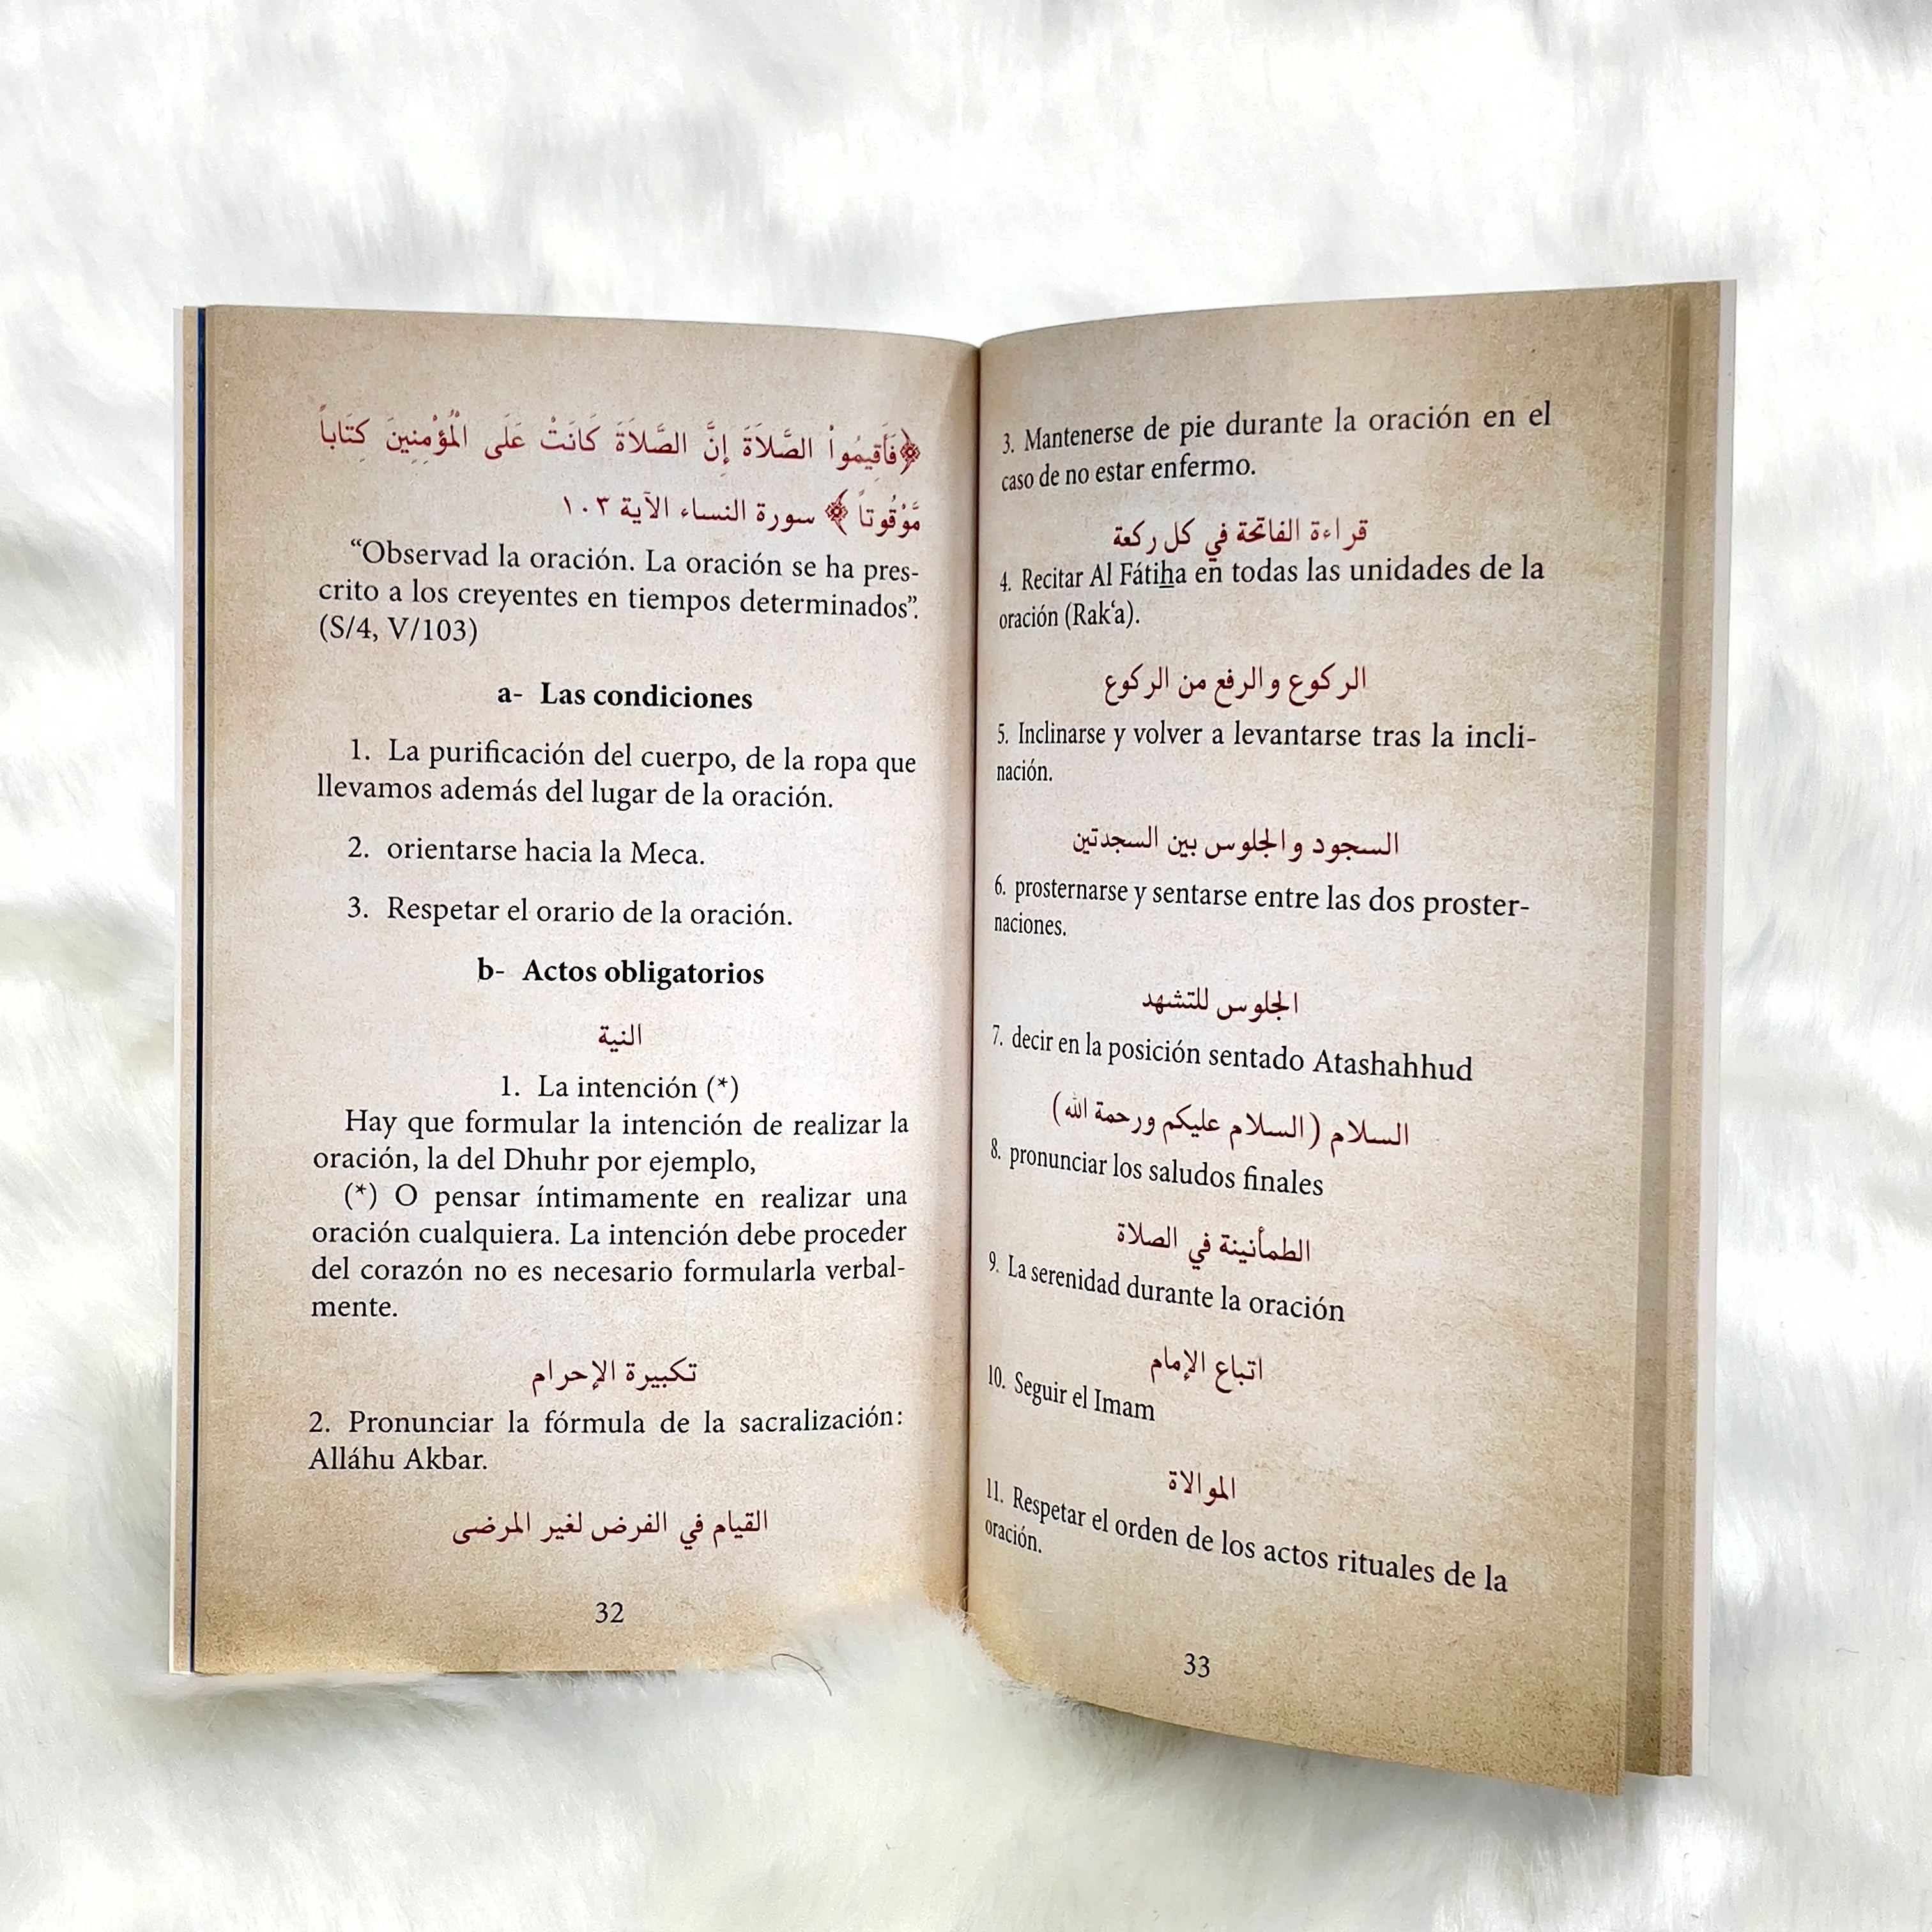 ﴿فَأَقِيمُواْ الصَّلاَةَ إِنَّ الصَّلاَةَ كَانَتْ عَلَى الْمُؤْمِنِينَ كِتَاباً
مَّوْقُوتاً﴾ سورة النساء الآية ١٠٣
“Observad la oración. La oración se ha pres-
crito a los creyentes en tiempos determinados”.
(S/4, V/103)
a- Las condiciones
1. La purificación del cuerpo, de la ropa que
llevamos además del lugar de la oración.
2. orientarse hacia la Meca.
3. Respetar el orario de la oración.
b- Actos obligatorios
النية
1. La intención (*)
Hay que formular la intención de realizar la
oración, la del Dhuhr por ejemplo,
(*) O pensar íntimamente en realizar una
oración cualquiera. La intención debe proceder
del corazón no es necesario formularla verbal-
mente.
تكبيرة الإحرام
2. Pronunciar la fórmula de la sacralización:
Alláhu Akbar.
القيام في الفرض لغير المرضى
32
3. Mantenerse de pie durante la oración en el
caso de no estar enfermo.
قراءة الفاتحة في كل ركعة
4. Recitar Al Fátiẖa en todas las unidades de la
oración (Rak‘a).
الركوع والرفع من الركوع
5. Inclinarse y volver a levantarse tras la incli-
nación.
السجود والجلوس بين السجدتين
6. prosternarse y sentarse entre las dos proster-
naciones.
الجلوس للتشهد
7. decir en la posición sentado Atashahhud
السلام (السلام عليكم ورحمة الله)
8. pronunciar los saludos finales
الطمأنينة في الصلاة
9. La serenidad durante la oración
اتباع الإمام
10. Seguir el Imam
الموالاة
11. Respetar el orden de los actos rituales de la
oración.
33